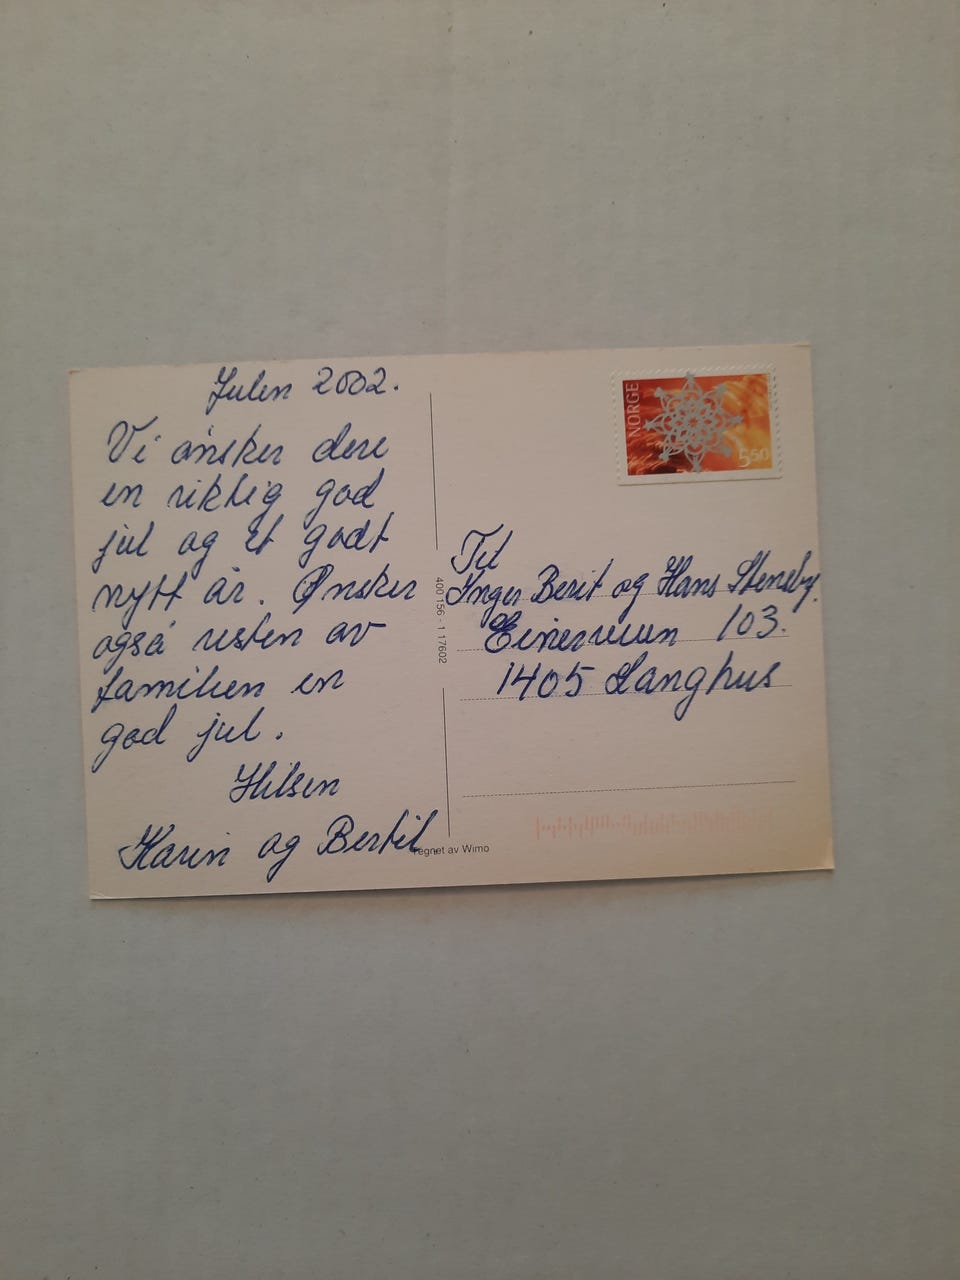 Julen 2002.
Vi ønsker dere
en riktig god
jul og et godt
nytt år. Ønsker
også resten av
familien en
god jul.
Hilsen
Karin og Bertil
NORGE
5.50
Til
Inger Berit og Hans Stensby.
Einerveien 103.
1405 Langhus
400 156 - 1 17602
Tegnet av Wimo